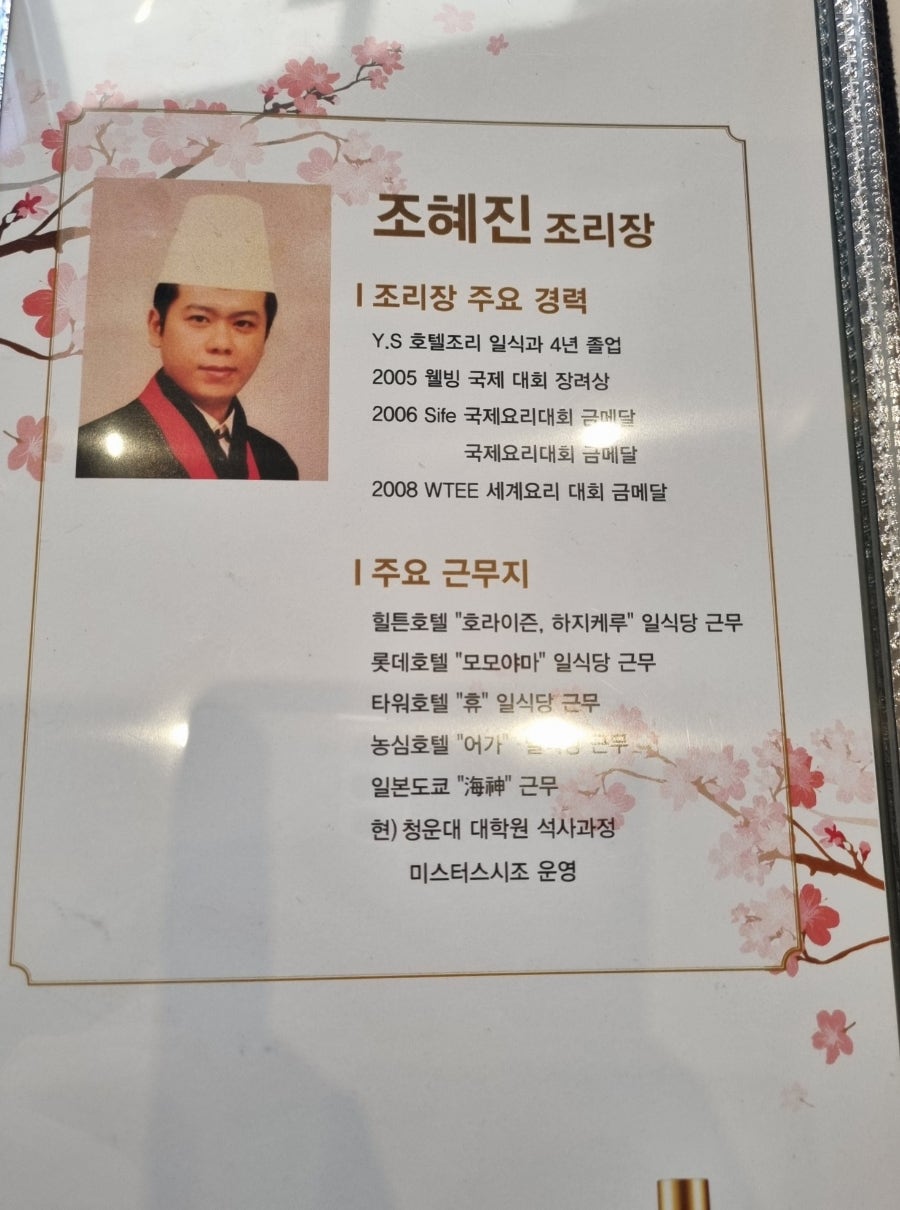 조혜진 조리장
| 조리장 주요 경력
Y.S 호텔조리 일식과 4년 졸업
2005 웰빙 국제 대회 장려상
2006 Sife 국제요리대회 금메달
국제요리대회 금메달
2008 WTEE 세계요리 대회 금메달
| 주요 근무지
힐튼호텔 "호라이즌, 하지케루" 일식당 근무
롯데호텔 "모모야마" 일식당 근무
타워호텔 "휴" 일식당 근무
농심호텔 "어가" 일식당 근무
일본도쿄 "海神" 근무
현) 청운대 대학원 석사과정
미스터스시조 운영